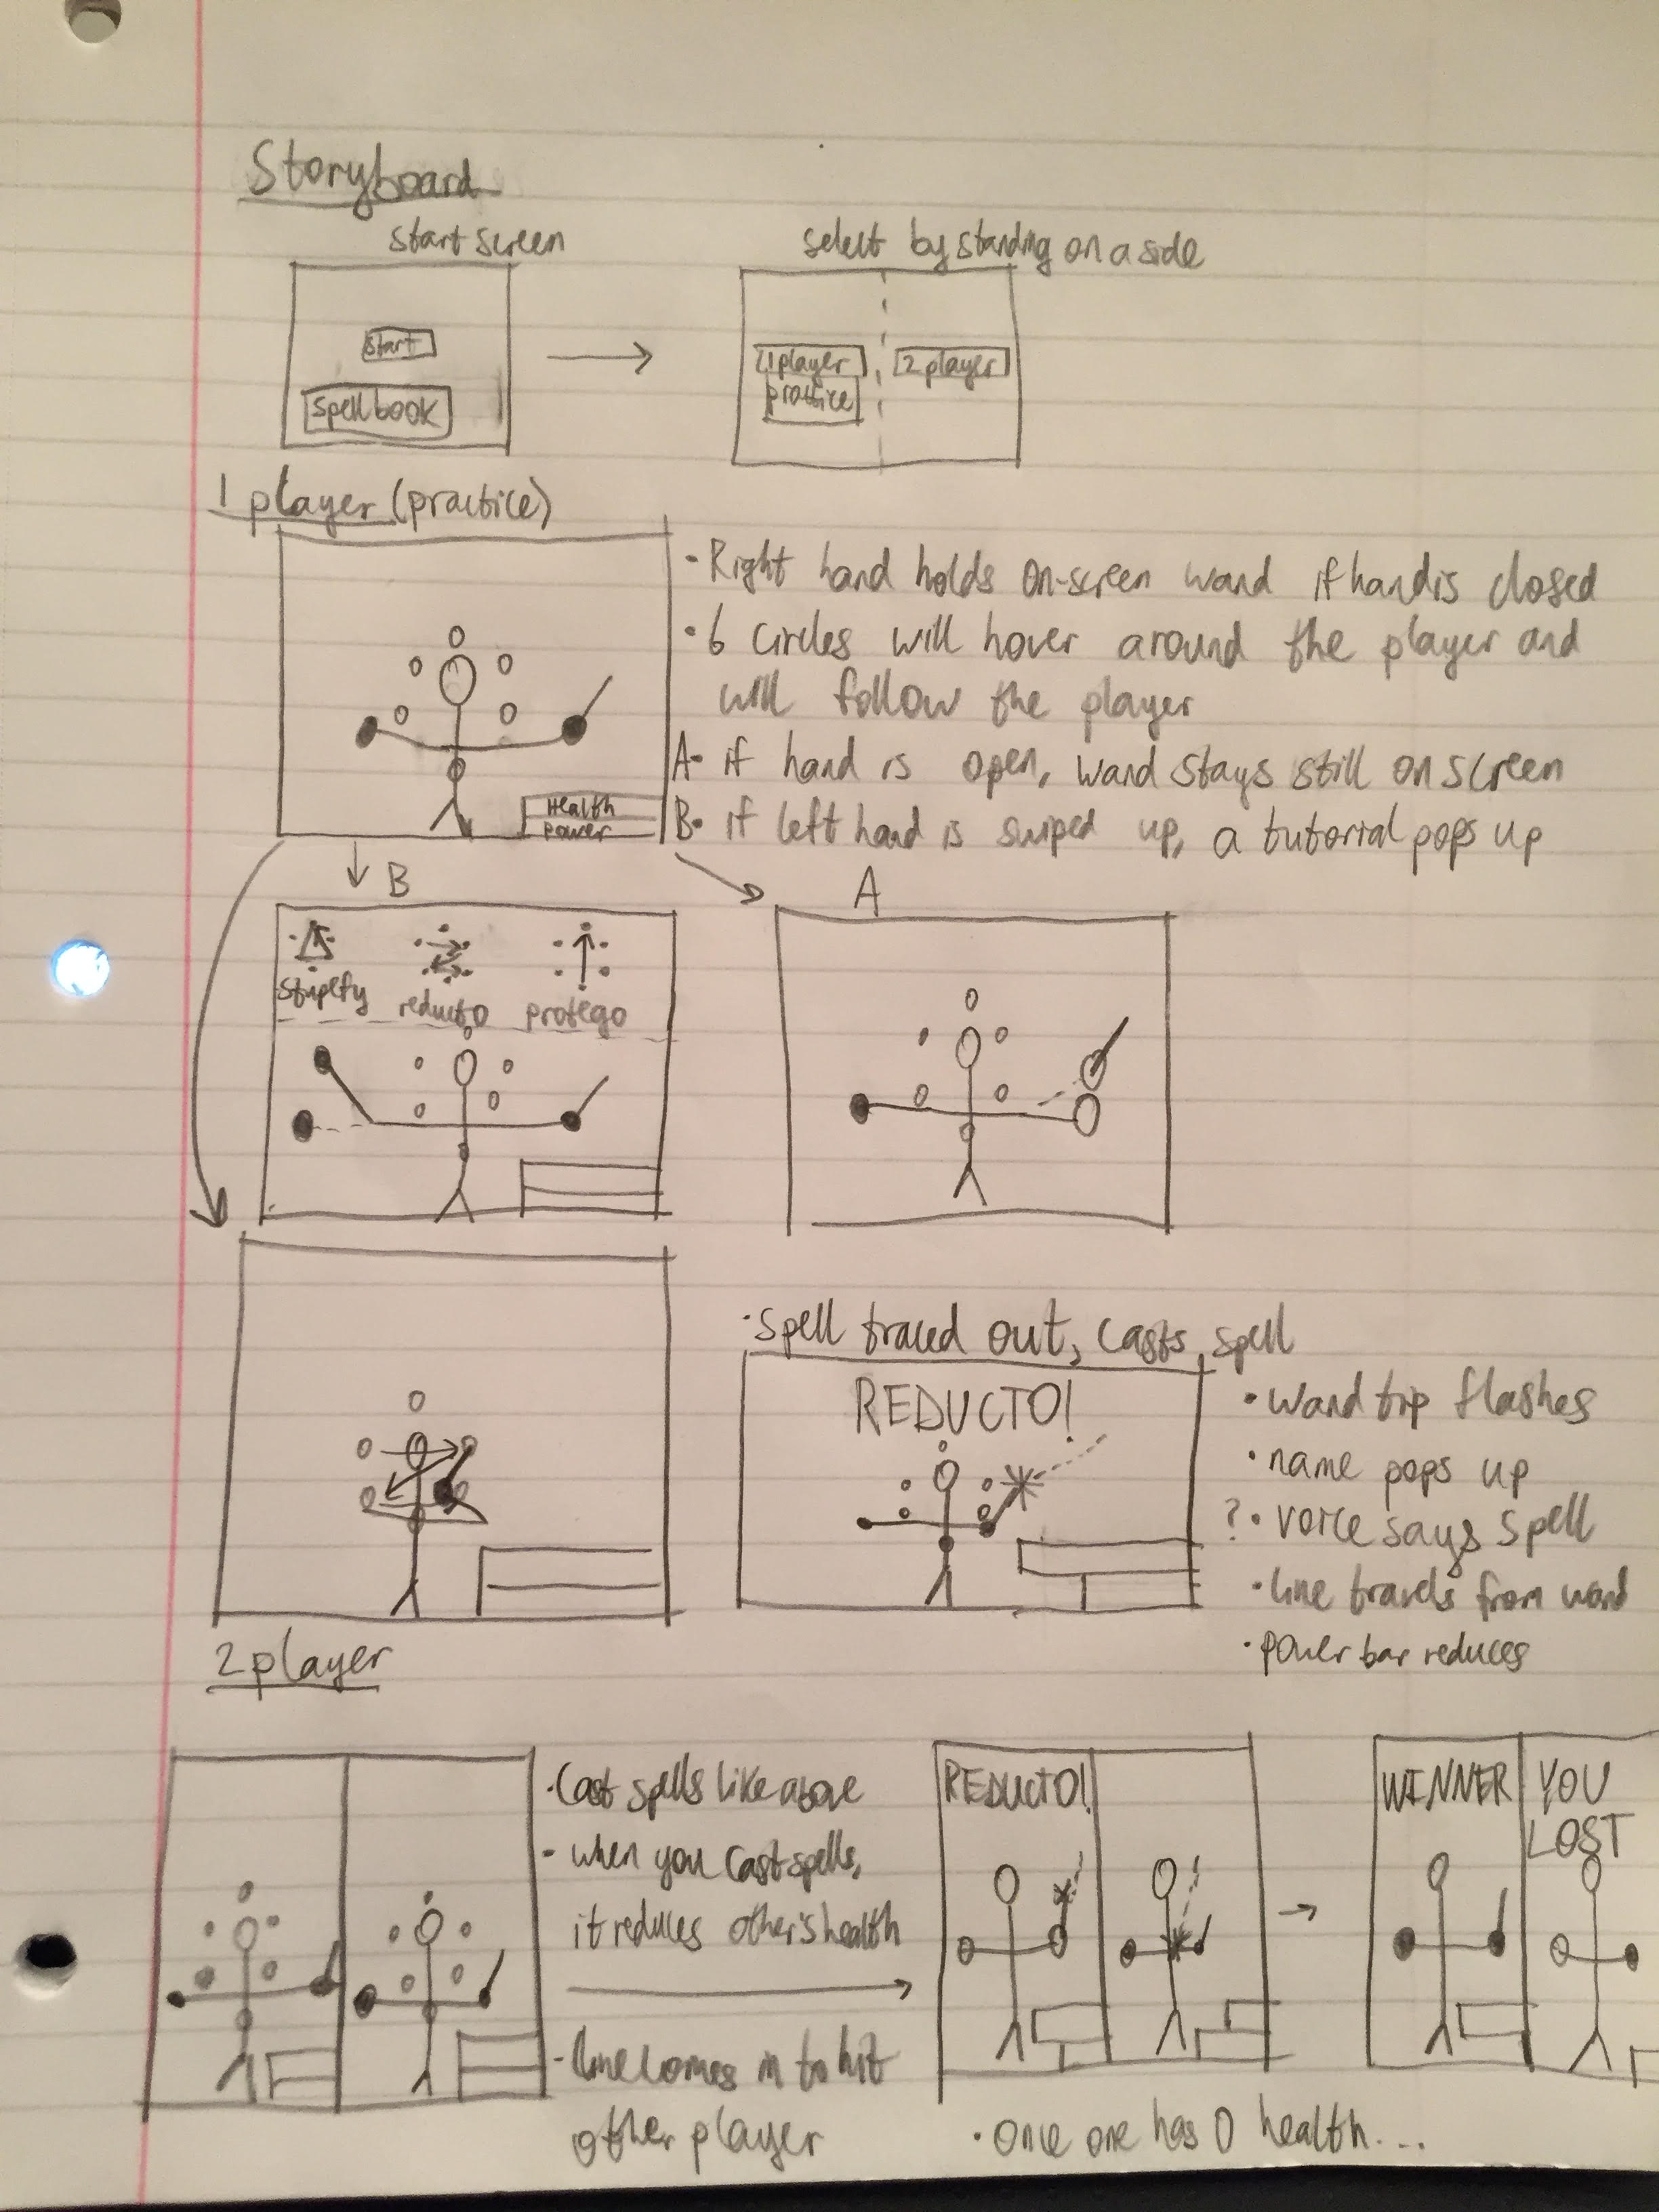 Storyboard
start screen
select by standing on a side
start
spell book
1 player
practice
2 player
1 player (practice)
• Right hand holds on-screen wand if hand is closed
• 6 circles will hover around the player and
will follow the player
A• if hand is open, wand stays still on screen
B• if left hand is swiped up, a tutorial pops up
Health
power
B
A
stupefy
reducto
protego
• spell traced out, casts spell
REDUCTO!
• wand tip flashes
• name pops up
? • voice says spell
• line travels from wand
• power bar reduces
2 player
• Cast spells like above
- when you cast spells,
it reduces other's health
- line comes in to hit
other player
REDUCTO!
WINNER
YOU
LOST
• once one has 0 health...